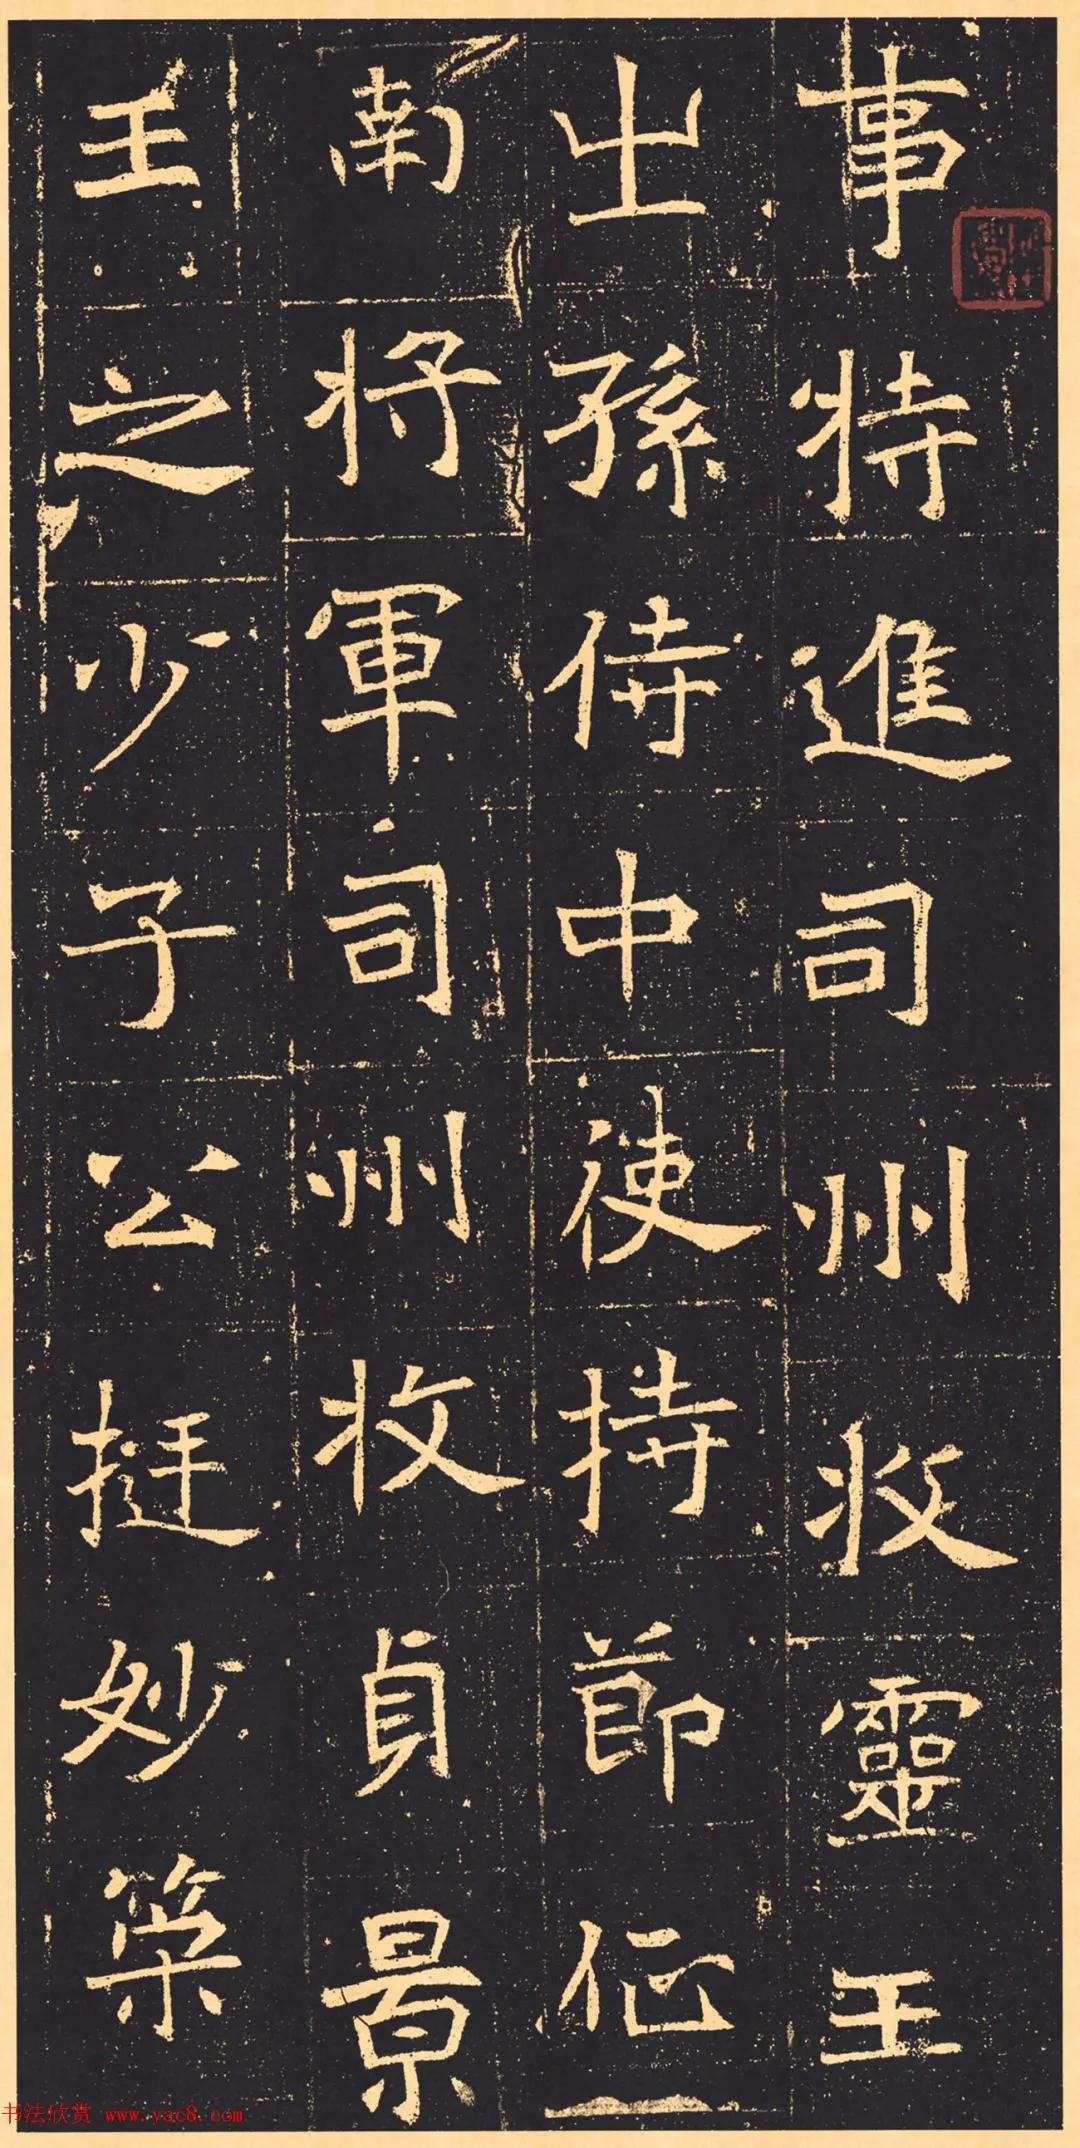 事特進司州牧靈王
㞢孫侍中使持節征
南將軍司州牧貞景
王之少子公挺妙策
书法欣赏 www.yac8.com